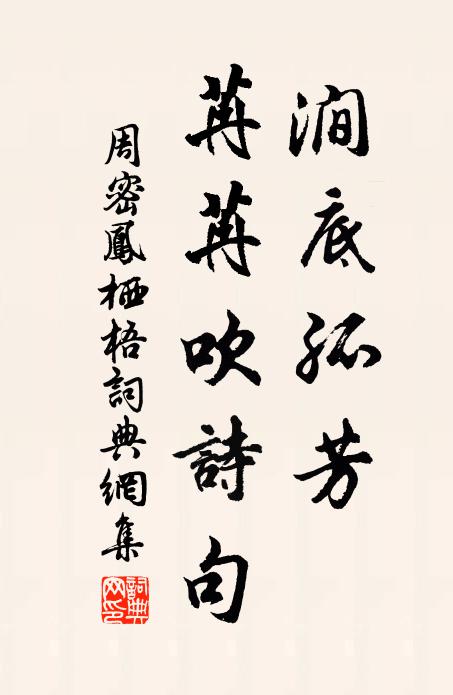 澗底孤芳
苒苒吹詩句
周密鳳栖梧詞典網集
詞典網印